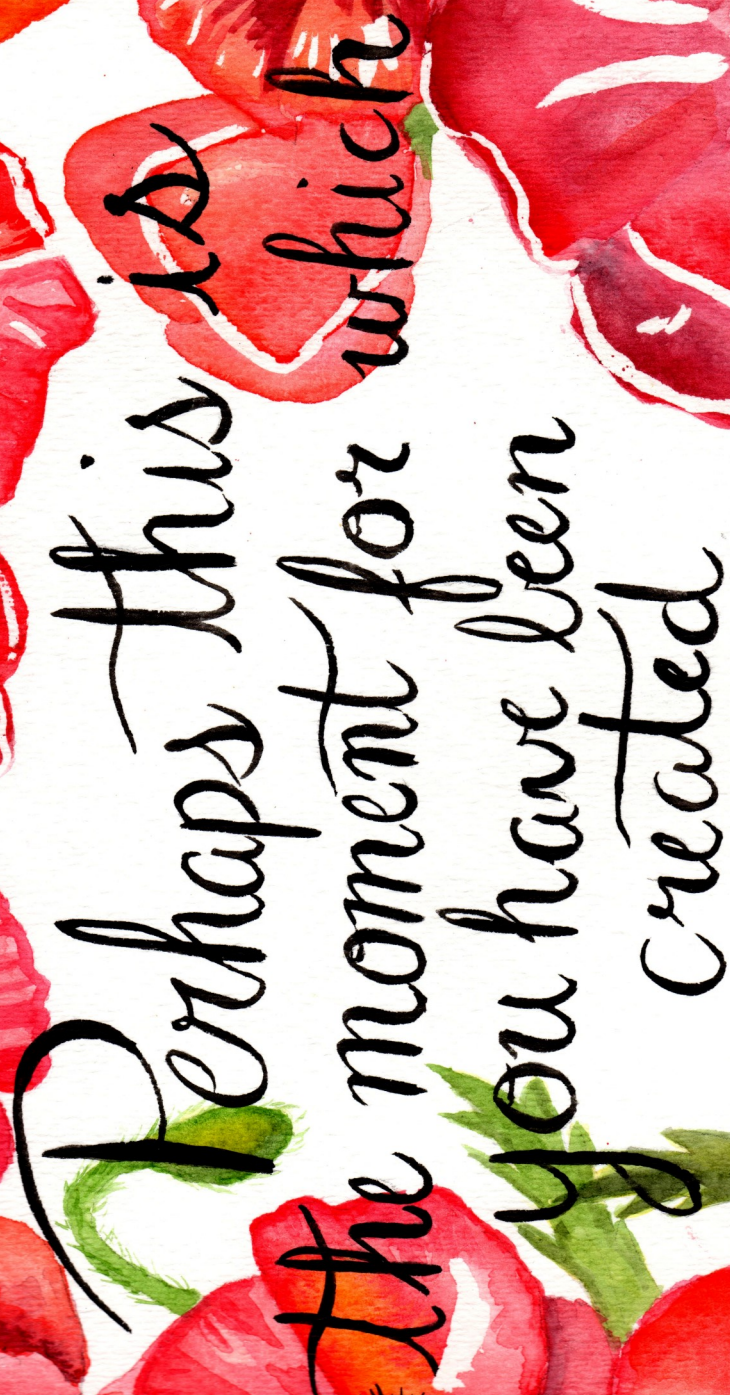 Perhaps this is
the moment for which
you have been
created